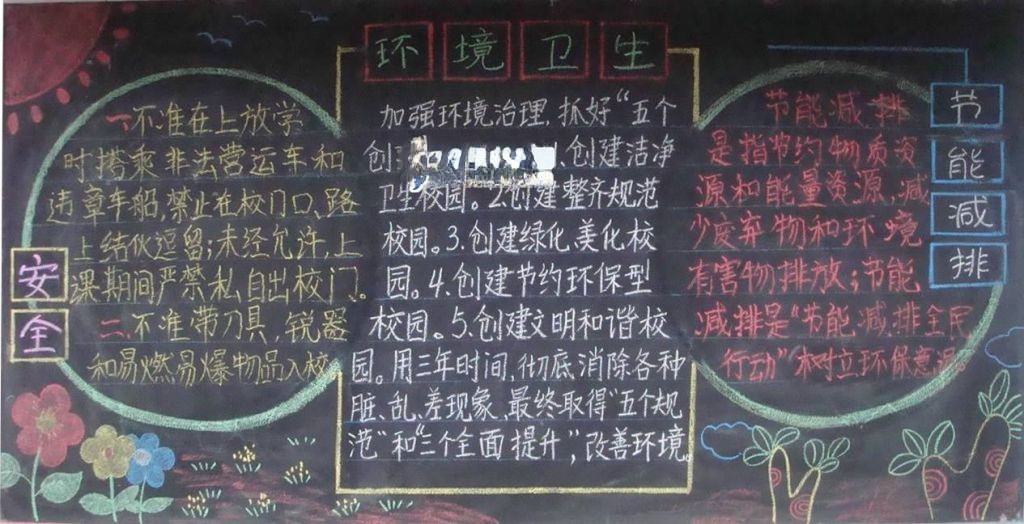 环境卫生
安全
一、不准在上放学
时搭乘非法营运车和
违章车船,禁止在校门口、路
上结伙逗留;未经允许,上
课期间严禁私自出校门。
二、不准带刀具,锐器
和易燃易爆物品入校
加强环境治理,抓好“五个
创 、创建洁净
卫生校园。2.创建整齐规范
校园。3.创建绿化、美化校
园。4.创建节约环保型
校园。5.创建文明和谐校
园。用三年时间,彻底消除各种
脏、乱、差现象,最终取得“五个规
范”和“三个全面提升”,改善环境。
节能减排
节能减排
是指节约物质资
源和能量资源,减
少废弃物和环境
有害物排放;节能
减排是“节能减排全民
行动”树立环保意识。